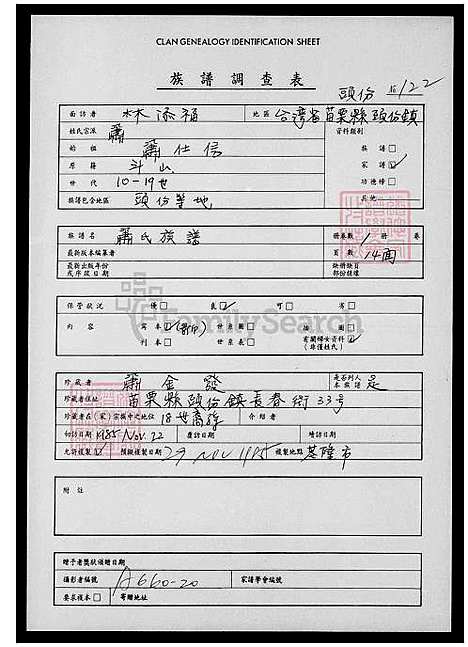 CLAN GENEALOGY IDENTIFICATION SHEET
族譜調查表
頭份 16/22
面訪者 林添福 地區 台灣省苗栗縣頭份鎮
姓氏宗派 蕭 資料類別
始祖 蕭仕信 族譜□
原籍 斗山 家譜☑
世代 10-19世 功德榜□
族譜包含地區 頭份等地 其他
族譜名 蕭氏族譜 冊卷數 1 冊 卷
最新版本編纂者 頁數 14面
最新出版年份或序跋日期 缺冊缺頁部份註譯
保管狀況 優□ 良☑ 可□ 劣□
內容 寫本☑(影印) 世系圖□ 插圖□
刊本□ 世系表□ 有關婦女資料☑(非僅姓氏)
FamilySearch
珍藏者 蕭金發 是否列入本族譜 是
珍藏者住址 苗栗縣頭份鎮長春街33号
珍藏者在(家)宗族中之地位 18世裔孫 介紹者
初訪日期 1985 Nov. 22 覆訪日期 續訪日期
允許複製☑ 預擬複製日期 29 NOV 1985 複製地點 基隆市
附註
贈予者獎狀頒贈日期
攝影者編號 A660-20 家譜學會編號
要求複本□ 寄贈地址